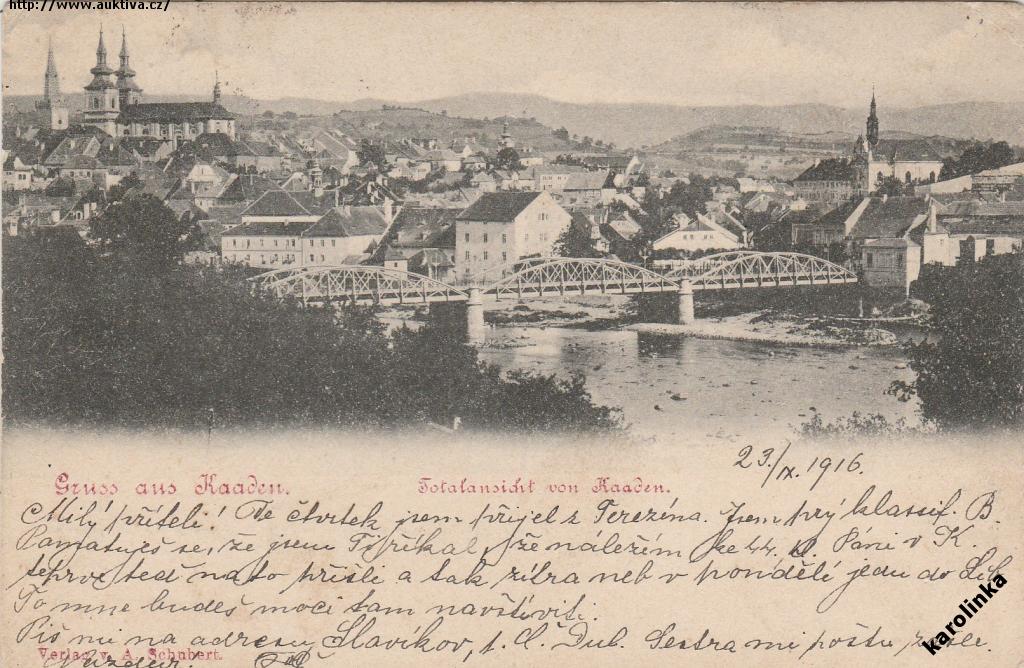 http://www.auktiva.cz/
23./IX. 1916.
Gruss aus Kaaden.
Totalansicht von Kaaden.
Milý příteli! Ve čtvrtek jsem přijel z Terezína. Jsem prý klassif. B.
Pamatuješ se, že jsem Ti říkal, že náležím ke 44. Páni v K
teprve teď na to přišli a tak zítra neb v pondělí jedu do
To mne budeš moci tam navštíviti.
Piš mi na adresu Slavíkov, p. Č. Dub. Sestra mi poštu
Verlag v. A. Schubert.
karolinka